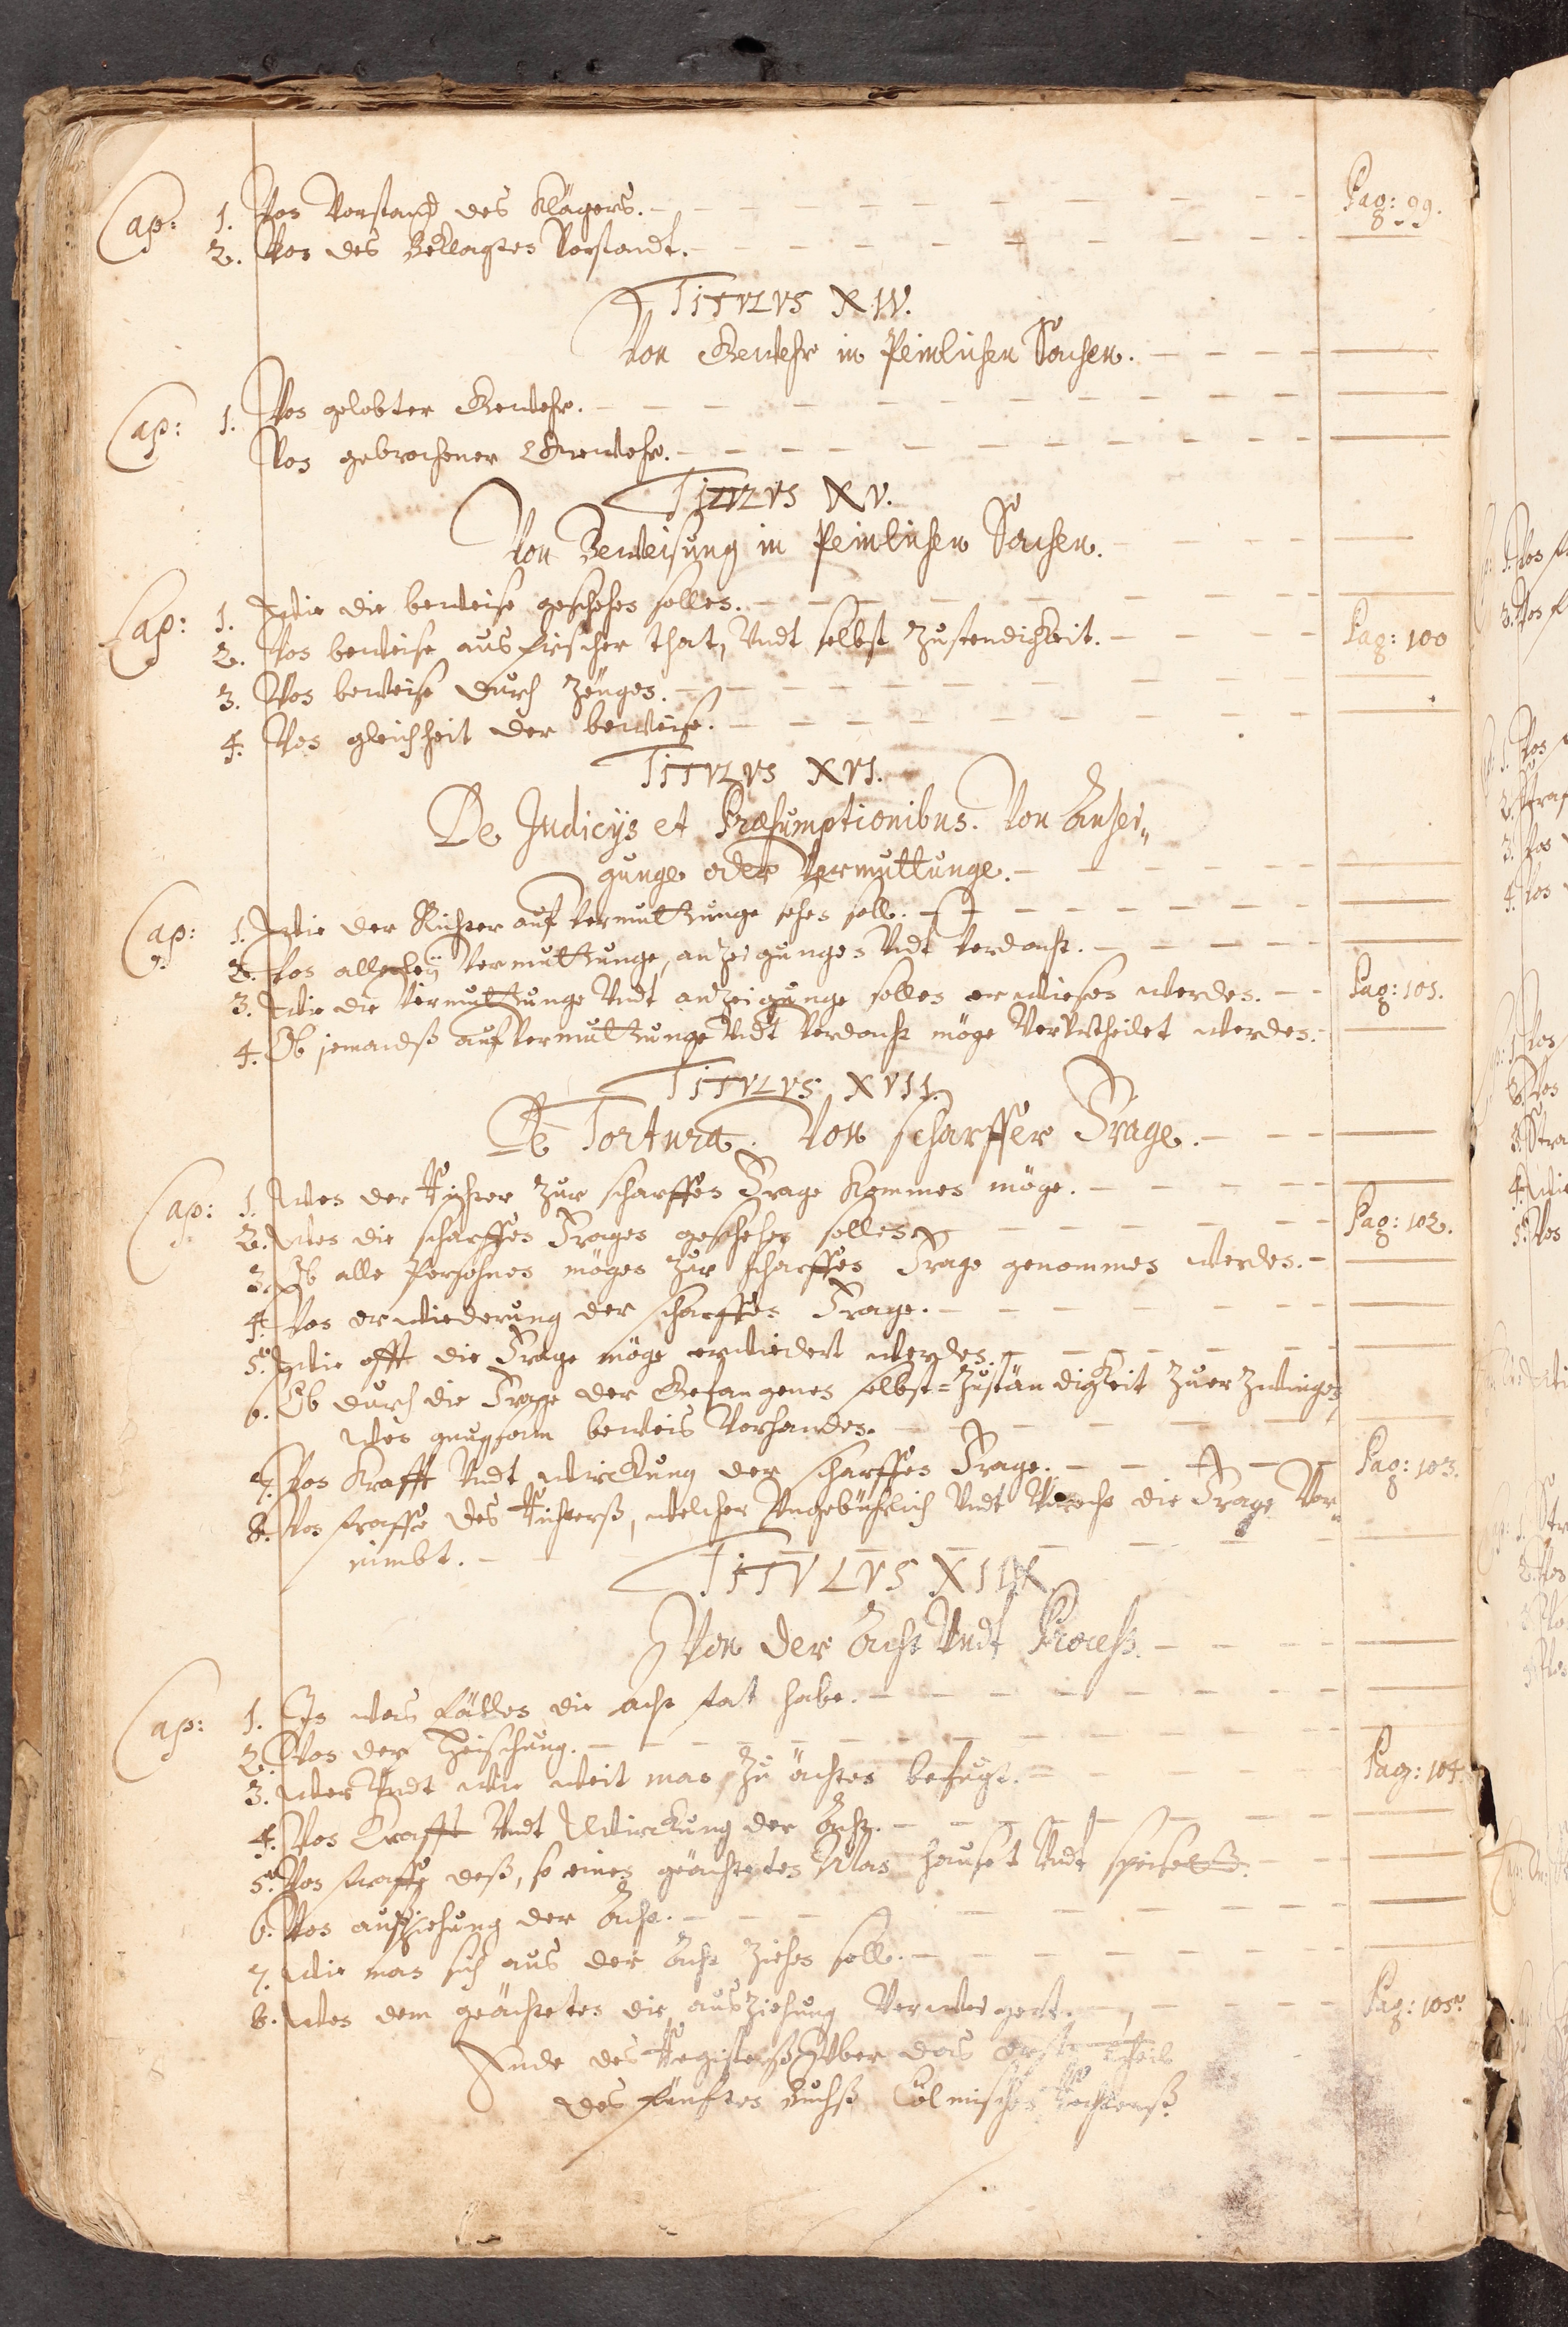 Cap: 1. Von Vorstand des Klägers. Pag: 99.
2. Von des Beklagten Vorstandt.
TITVLVS XIV.
Von Gewehr in Peinlichen Sachen.
Cap: 1. Von gelobter Gewehr.
Von gebrochener Gewehr.
TITVLVS XV.
Von Beweisung in Peinlichen Sachen.
Cap: 1. Wie die beweise geschehen sollen.
2. Von beweise aus frischer that, Vndt selbst Zustendigkeit. Pag: 100
3. Von beweise durch Zeugen.
4. Von gleichheit der beweise.
TITVLVS XVI.
De Indicijs et Præsumptionibus. Von Anzei„
gunge oder Vermuttunge.
Cap: 1. Wie der Richter auf Vermuttunge sehen soll.
2. Von allerley Vermuttunge, anzeigungen Vndt Verdacht.
3. Wie die Vermuttunge Vndt anzeigunge sollen erwiesen werden. Pag: 101.
4. Ob jemandß auf Vermuttunge Vndt Verdacht möge Verurtheilet werden.
TITVLVS XVII.
De Tortura. Von scharffer Frage.
Cap: 1. Wen der Richter zur scharffen Frage kommen möge.
2. Wen die scharffen Fragen geschehen sollen. Pag: 102.
3. Ob alle Persohnen mögen zur scharffen Frage genommen werden.
4. Von erwiederung der scharffen Frage.
5. Wie offt die Frage möge erwiedert werden.
6. Ob durch die Frage der Gefangenen selbst=Zuständigkeit zuerzwingen,
wen gnugsam beweis Vorhanden.
7. Von Krafft Vndt wirckung der scharffen Frage. Pag: 103.
8. Von straffe des Richterß, welcher Vngebührlich Vndt die Frage Vor„
nimbt.
TITVLVS XIIX
Von der Acht Vndt Process.
Cap: 1. In was fällen die acht stat habe.
2. Von der Heischung.
3. Wer Vndt wie weit man zu ächten befugt. Pag: 104.
4. Von Krafft Vndt Wirckung der Acht.
5. Von straffe deß, so einen geächteten Man hauset Vndt speiset.
6. Von außziehung der Acht.
7. Wie man sich aus der Acht ziehen soll.
8. Wen dem geächteten die ausziehung Verweigert. Pag: 105.
Ende des Registerß Vber das erste theil
des fünften Buchß Cölmischen Rechtenß.